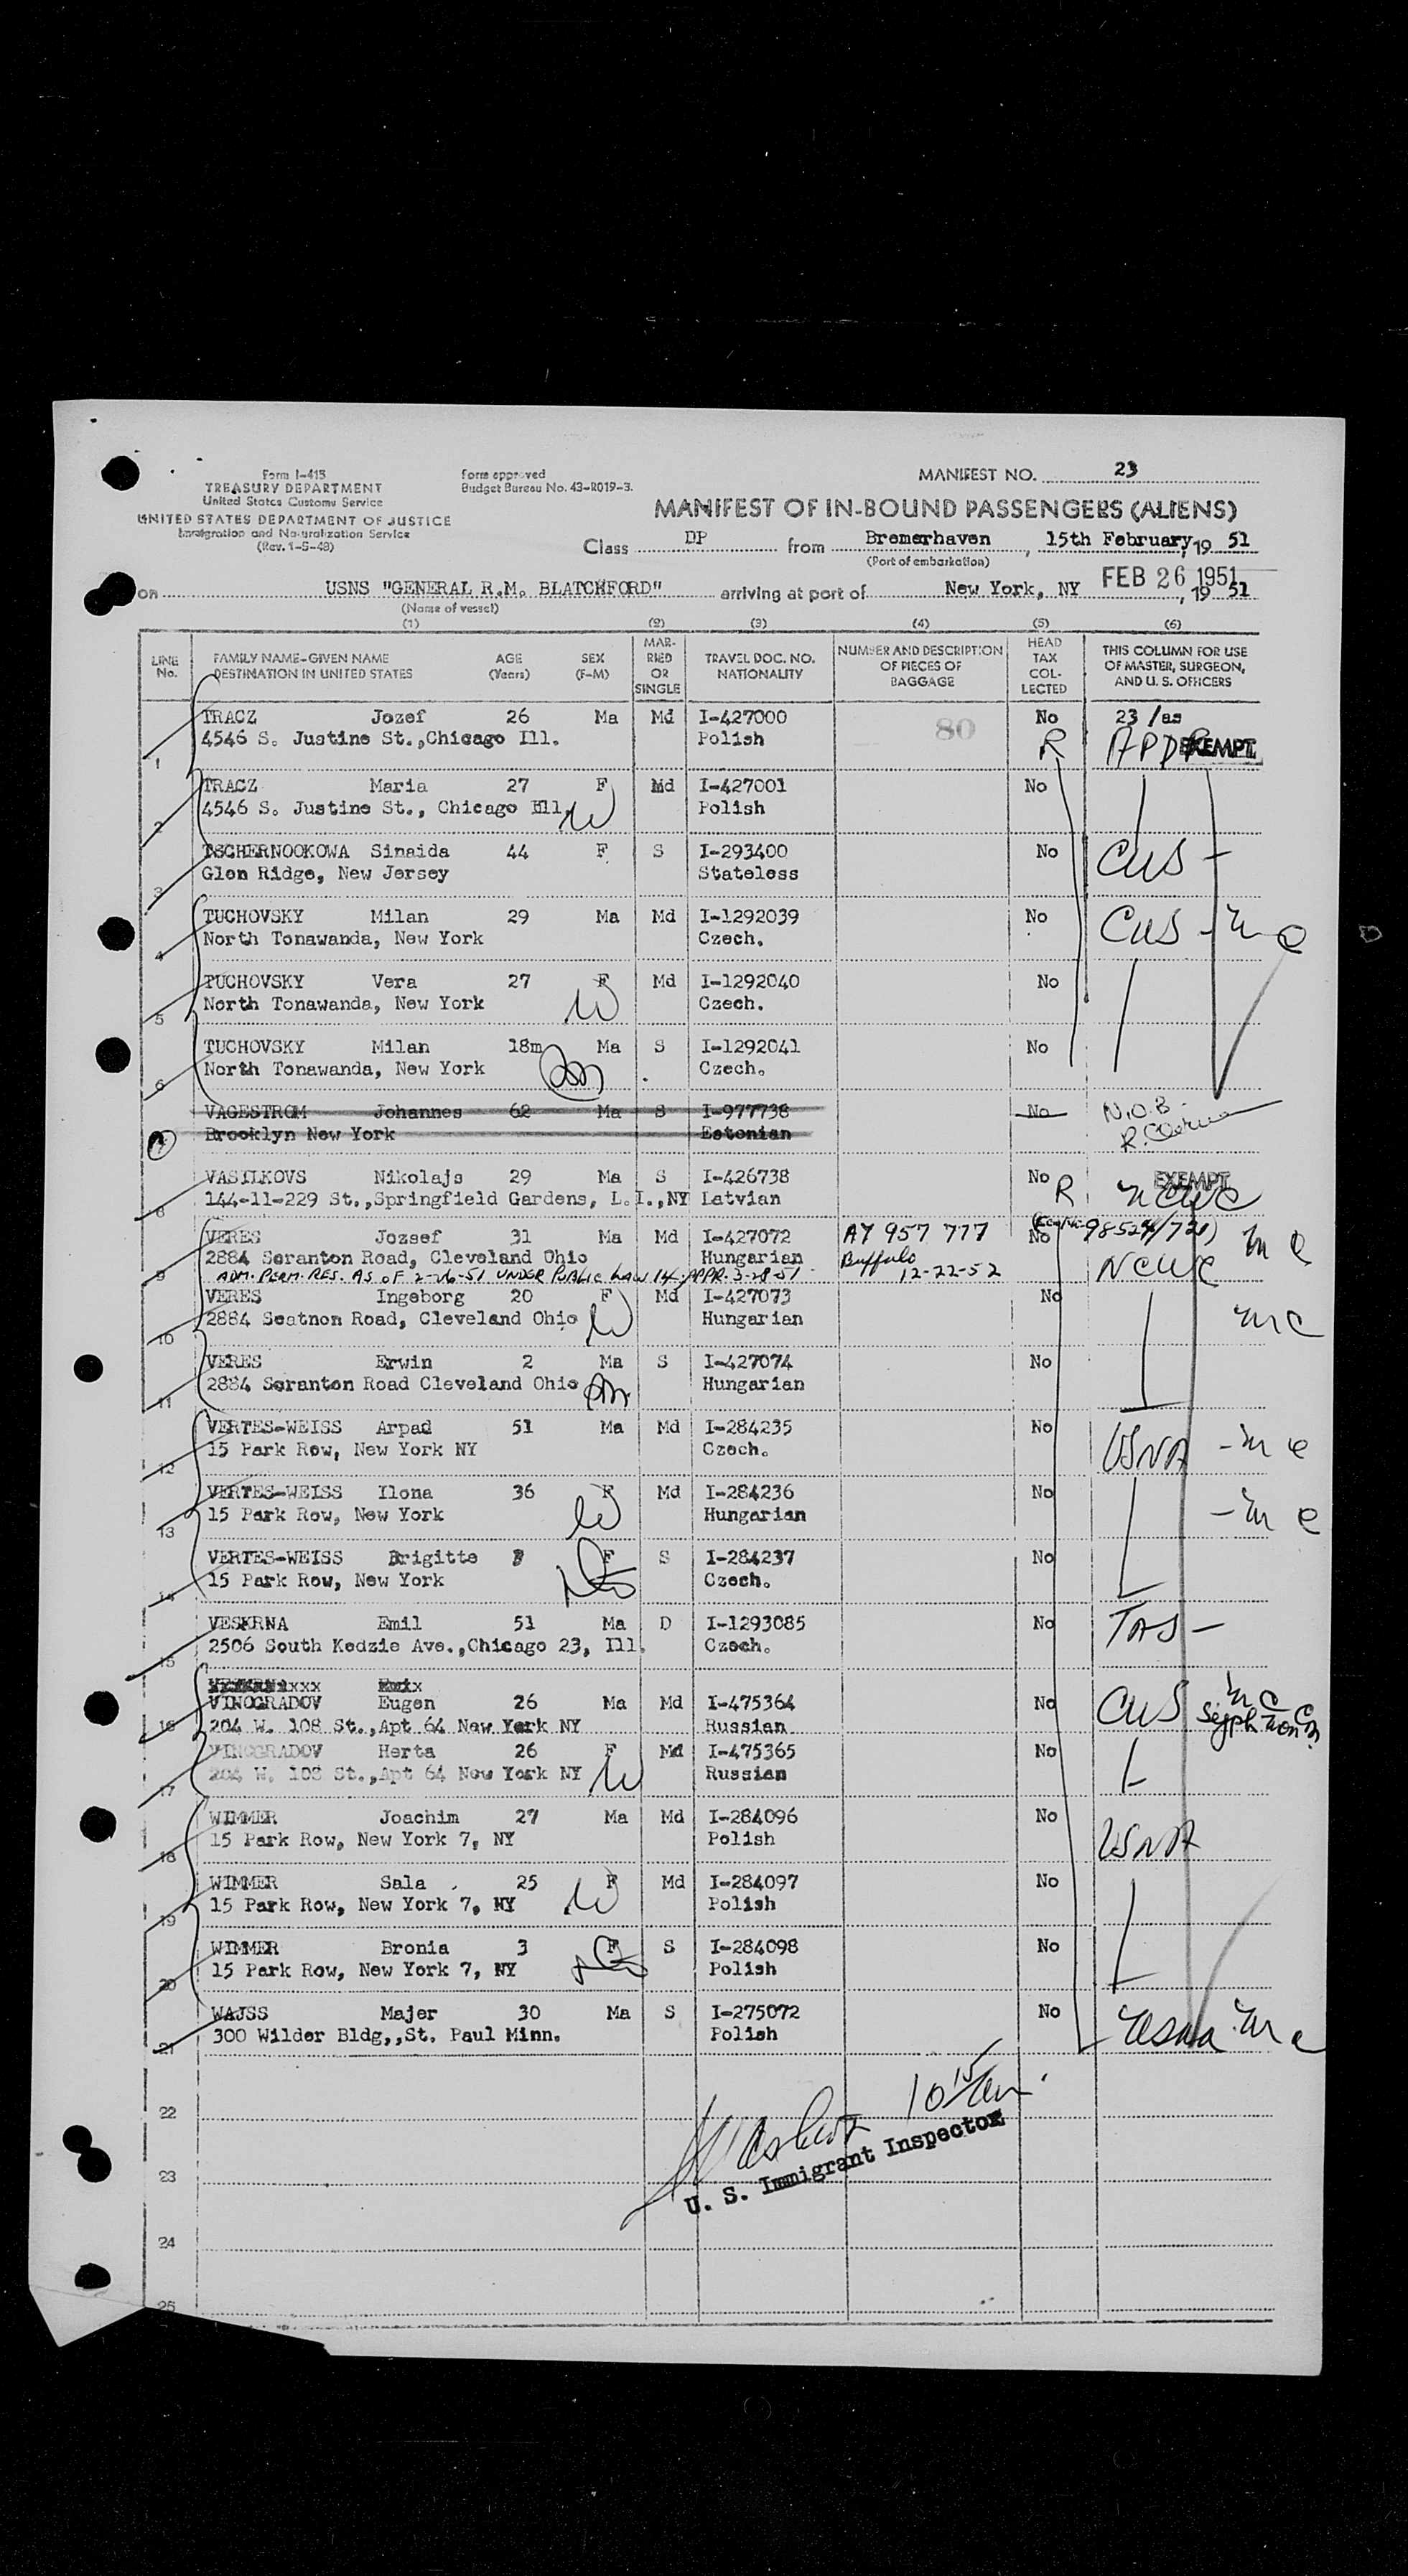 Form I-415
TREASURY DEPARTMENT
United States Customs Service
UNITED STATES DEPARTMENT OF JUSTICE
Immigration and Naturalization Service
(Rev. 1-5-48)
Form approved
Budget Bureau No. 43-R019-3.
MANIFEST NO. 23
MANIFEST OF IN-BOUND PASSENGERS (ALIENS)
Class DP from Bremerhaven, 15th February, 19 51
(Port of embarkation)
FEB 26 1951
on USNS "GENERAL R.M. BLATCHFORD" arriving at port of New York, NY, 19 51
(Name of vessel)
(1) (2) (3) (4) (5) (6)
LINE No. FAMILY NAME-GIVEN NAME DESTINATION IN UNITED STATES AGE (Years) SEX (F-M) MARRIED OR SINGLE TRAVEL DOC. NO. NATIONALITY NUMBER AND DESCRIPTION OF PIECES OF BAGGAGE HEAD TAX COLLECTED THIS COLUMN FOR USE OF MASTER, SURGEON, AND U. S. OFFICERS
1 TRACZ Jozef 26 Ma Md I-427000 80 No 23 /as
4546 S. Justine St.,Chicago Ill. Polish R APDP EXEMPT
2 TRACZ Maria 27 F Md I-427001 No
4546 S. Justine St., Chicago Ill. W Polish
3 TSCHERNOOKOWA Sinaida 44 F S I-293400 No CWS -
Glen Ridge, New Jersey Stateless
4 TUCHOVSKY Milan 29 Ma Md I-1292039 No CWS - m e
North Tonawanda, New York Czech.
5 TUCHOVSKY Vera 27 F Md I-1292040 No
North Tonawanda, New York W Czech.
6 TUCHOVSKY Milan 18m Ma S I-1292041 No
North Tonawanda, New York Son Czech.
7 VAGESTROM Johannes 62 Ma S I-977738 No N.O.B.
Brooklyn New York Estonian
8 VASILKOVS Nikolajs 29 Ma S I-426738 No EXEMPT
144-11-229 St.,Springfield Gardens, L.I.,NY Latvian R NCWC
9 VERES Jozsef 31 Ma Md I-427072 AY 957 777 No
2884 Scranton Road, Cleveland Ohio Hungarian Buffalo 12-22-52 NCWC m e
ADM. PERM. RES. AS OF 2-26-51 UNDER PUBLIC LAW 14, APPR. 3-28-51
10 VERES Ingeborg 20 F Md I-427073 No m e
2884 Scatnon Road, Cleveland Ohio W Hungarian
11 VERES Erwin 2 Ma S I-427074 No
2884 Scranton Road Cleveland Ohio Son Hungarian
12 VERTES-WEISS Arpad 51 Ma Md I-284235 No USNA - m e
15 Park Row, New York NY Czech.
13 VERTES-WEISS Ilona 36 F Md I-284236 No - m e
15 Park Row, New York W Hungarian
14 VERTES-WEISS Brigitte F S I-284237 No
15 Park Row, New York Czech.
15 VESKRNA Emil 51 Ma D I-1293085 No TAS -
2506 South Kedzie Ave.,Chicago 23, Ill. Czech.
16 VINOGRADOV Eugen 26 Ma Md I-475364 No CWS m e
204 W. 108 St.,Apt 64 New York NY Russian
17 VINOGRADOV Herta 26 F Md I-475365 No
204 W. 108 St.,Apt 64 New York NY W Russian
18 WIMMER Joachim 27 Ma Md I-284096 No USNA
15 Park Row, New York 7, NY Polish
19 WIMMER Sala 25 F Md I-284097 No
15 Park Row, New York 7, NY W Polish
20 WIMMER Bronia 3 F S I-284098 No
15 Park Row, New York 7, NY Polish
21 WAJSS Majer 30 Ma S I-275072 No usna m e
300 Wilder Bldg,,St. Paul Minn. Polish
10 15 am.
U. S. Immigrant Inspector
22
23
24
25